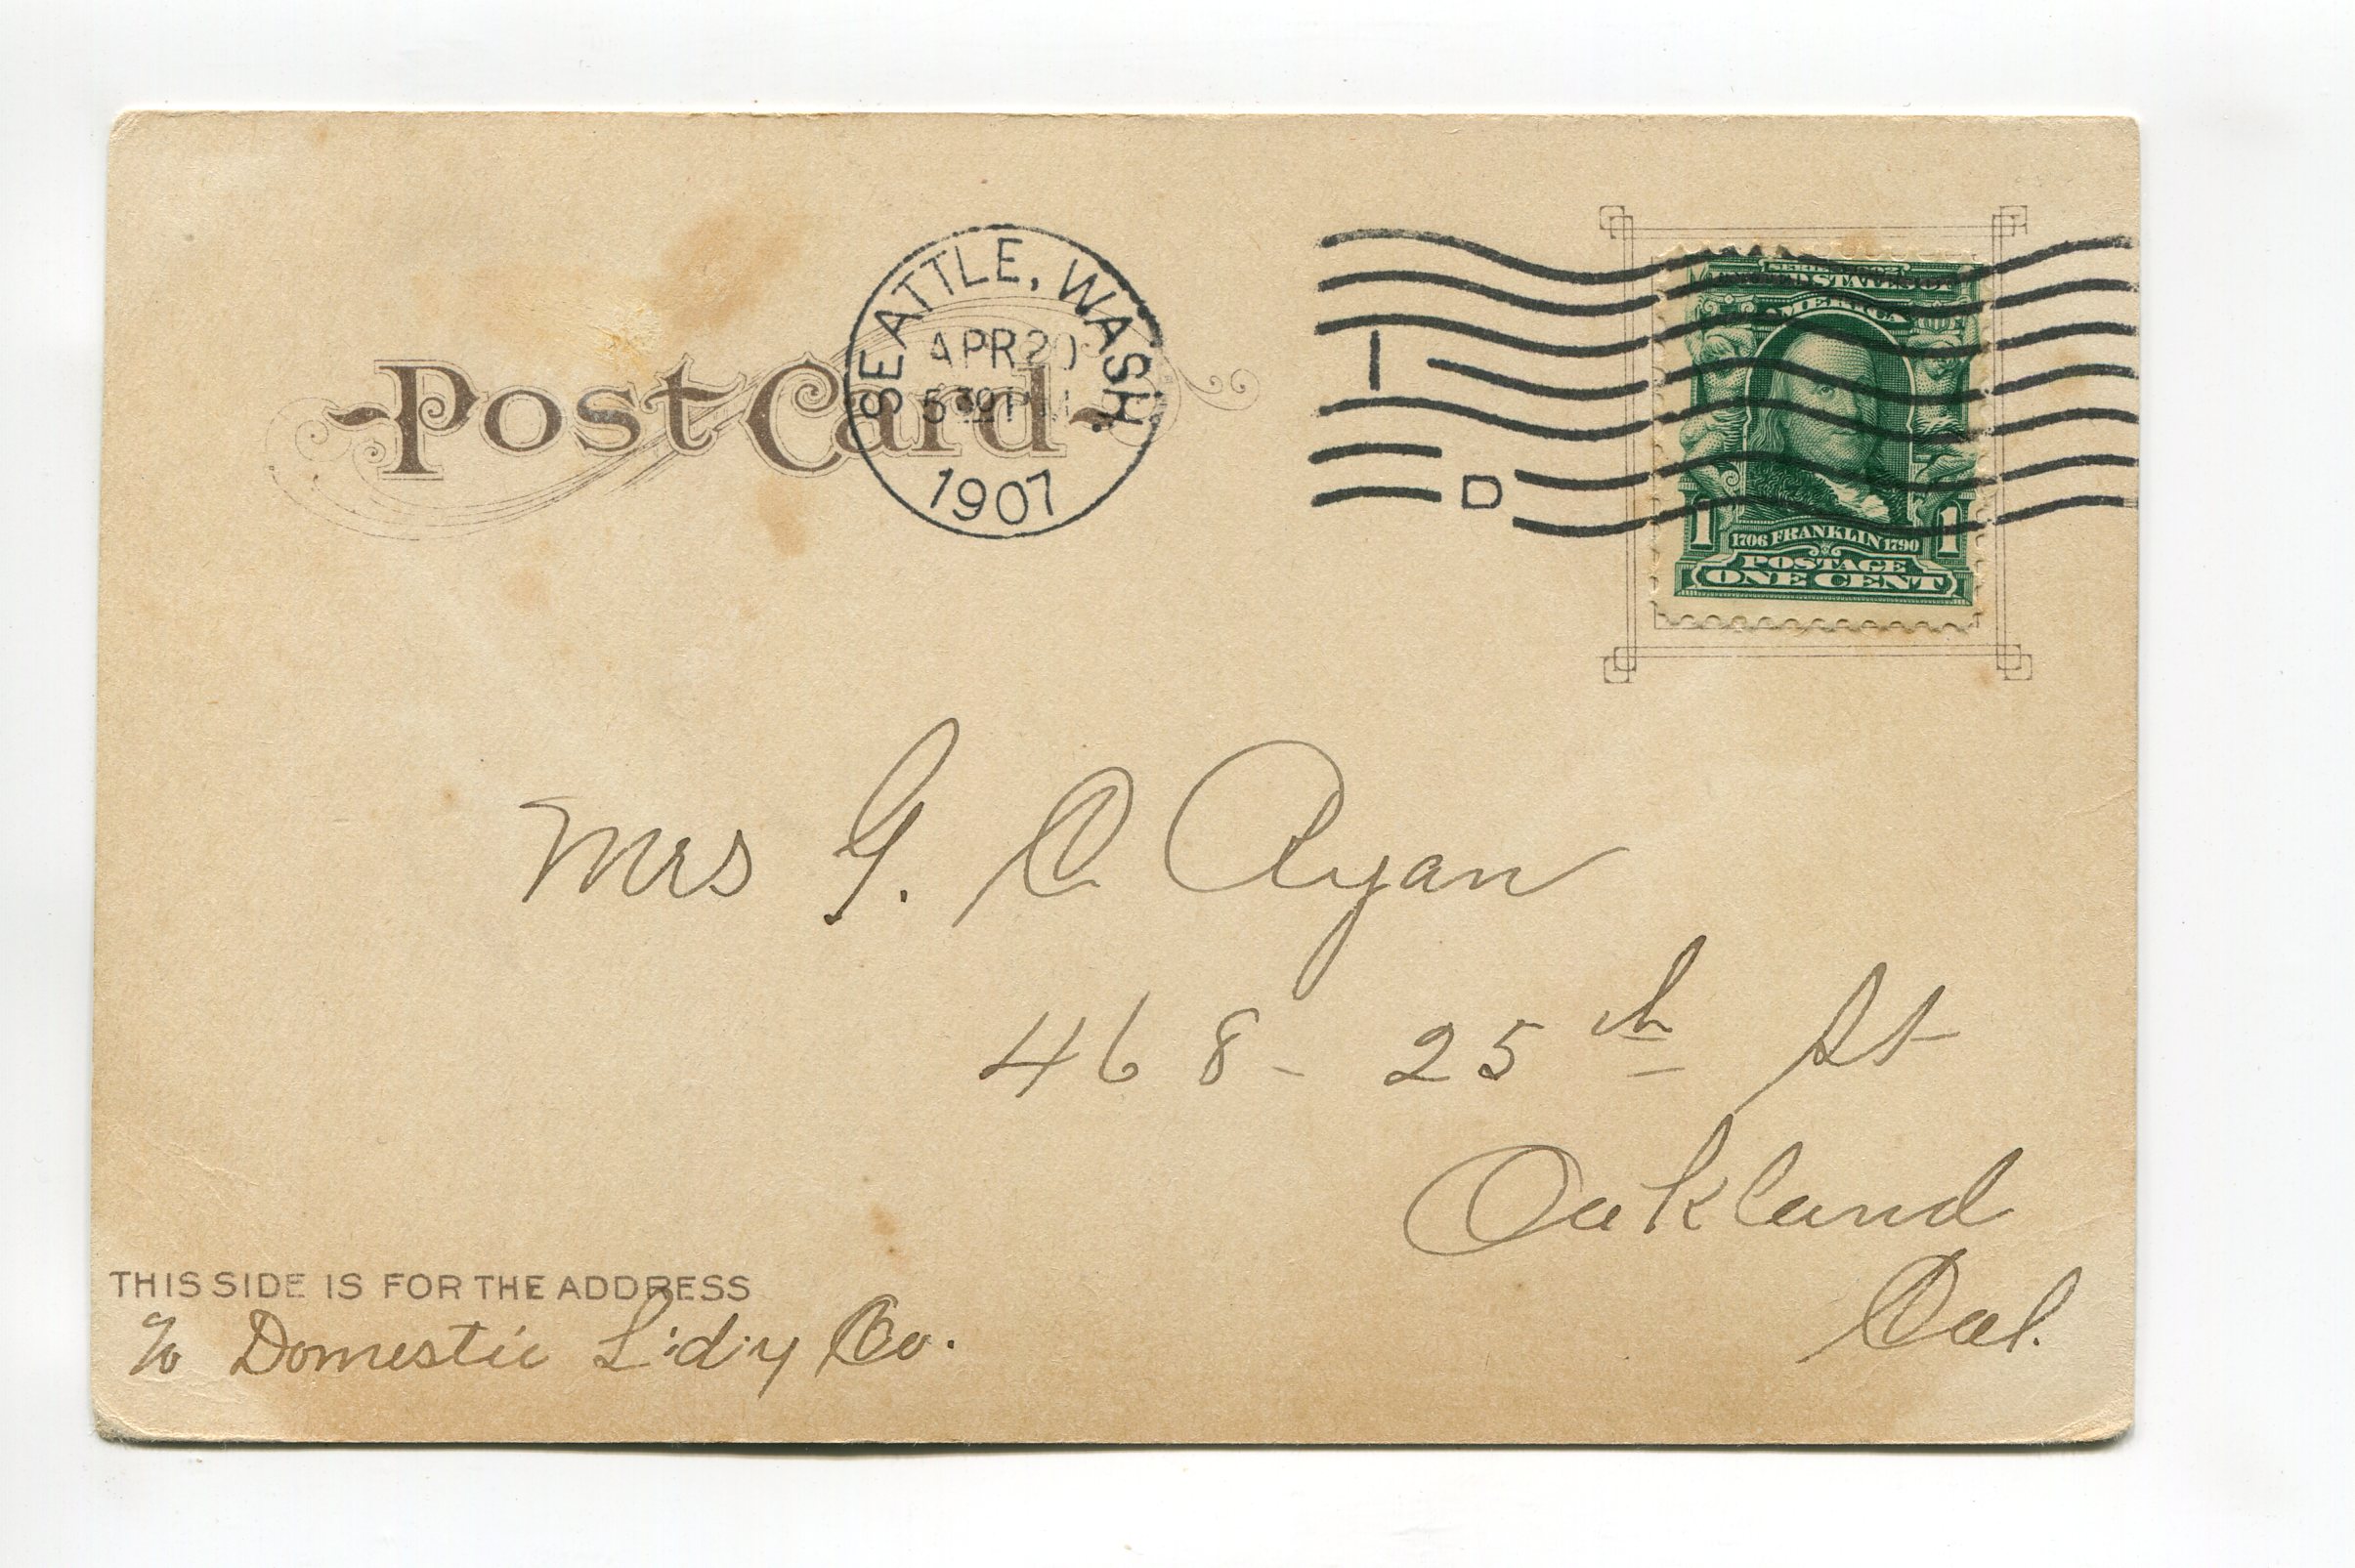 Post Card
SEATTLE, WASH.
APR 20
5 PM
1907
SERIES 1902
UNITED STATES OF
AMERICA
1 1706 FRANKLIN 1790 1
POSTAGE
ONE CENT
I
D
Mrs G. C Ryan
468 - 25th St
Oakland
Cal.
THIS SIDE IS FOR THE ADDRESS
℅ Domestic L'd'y Co.